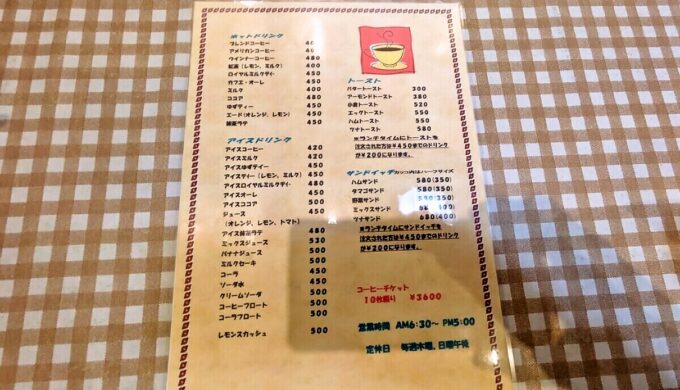 ホットドリンク
ブレンドコーヒー
アメリカンコーヒー
ウインナーコーヒー 480
紅茶 (レモン、ミルク) 400
ロイヤルミルクティ 450
カフェ・オーレ 450
ミルク 400
ココア 450
ゆずティー 450
エード(オレンジ、レモン) 450
抹茶ラテ 450
アイスドリンク
アイスコーヒー 420
アイスミルク 420
アイスゆずティー 450
アイスティー(レモン、ミルク) 450
アイスロイヤルミルクティ 480
アイスオーレ 450
アイスココア 500
ジュース 450
(オレンジ、レモン、トマト)
アイス抹茶ラテ 480
ミックスジュース 530
バナナジュース 500
ミルクセーキ 500
コーラ 450
ソーダ水 450
クリームソーダ 500
コーヒーフロート 500
コーラフロート 500
レモンスカッシュ 500
トースト
バタートースト 300
アーモンドトースト 380
小倉トースト 520
エッグトースト 550
ハムトースト 550
ツナトースト 580
※ランチタイムにトーストを
注文された方は¥450までのドリンク
が¥200になります。
サンドイッチ カッコ内はハーフサイズ
ハムサンド 580(350)
タマゴサンド 580(350)
野菜サンド (350)
ミックスサンド 400)
ツナサンド 680(400)
※ランチタイムにサンドイッチを
注文された方は¥450までのドリンク
が¥200になります。
コーヒーチケット
10枚綴り ¥3600
営業時間 AM6:30~ PM5:00
定休日 毎週木曜、日曜午後